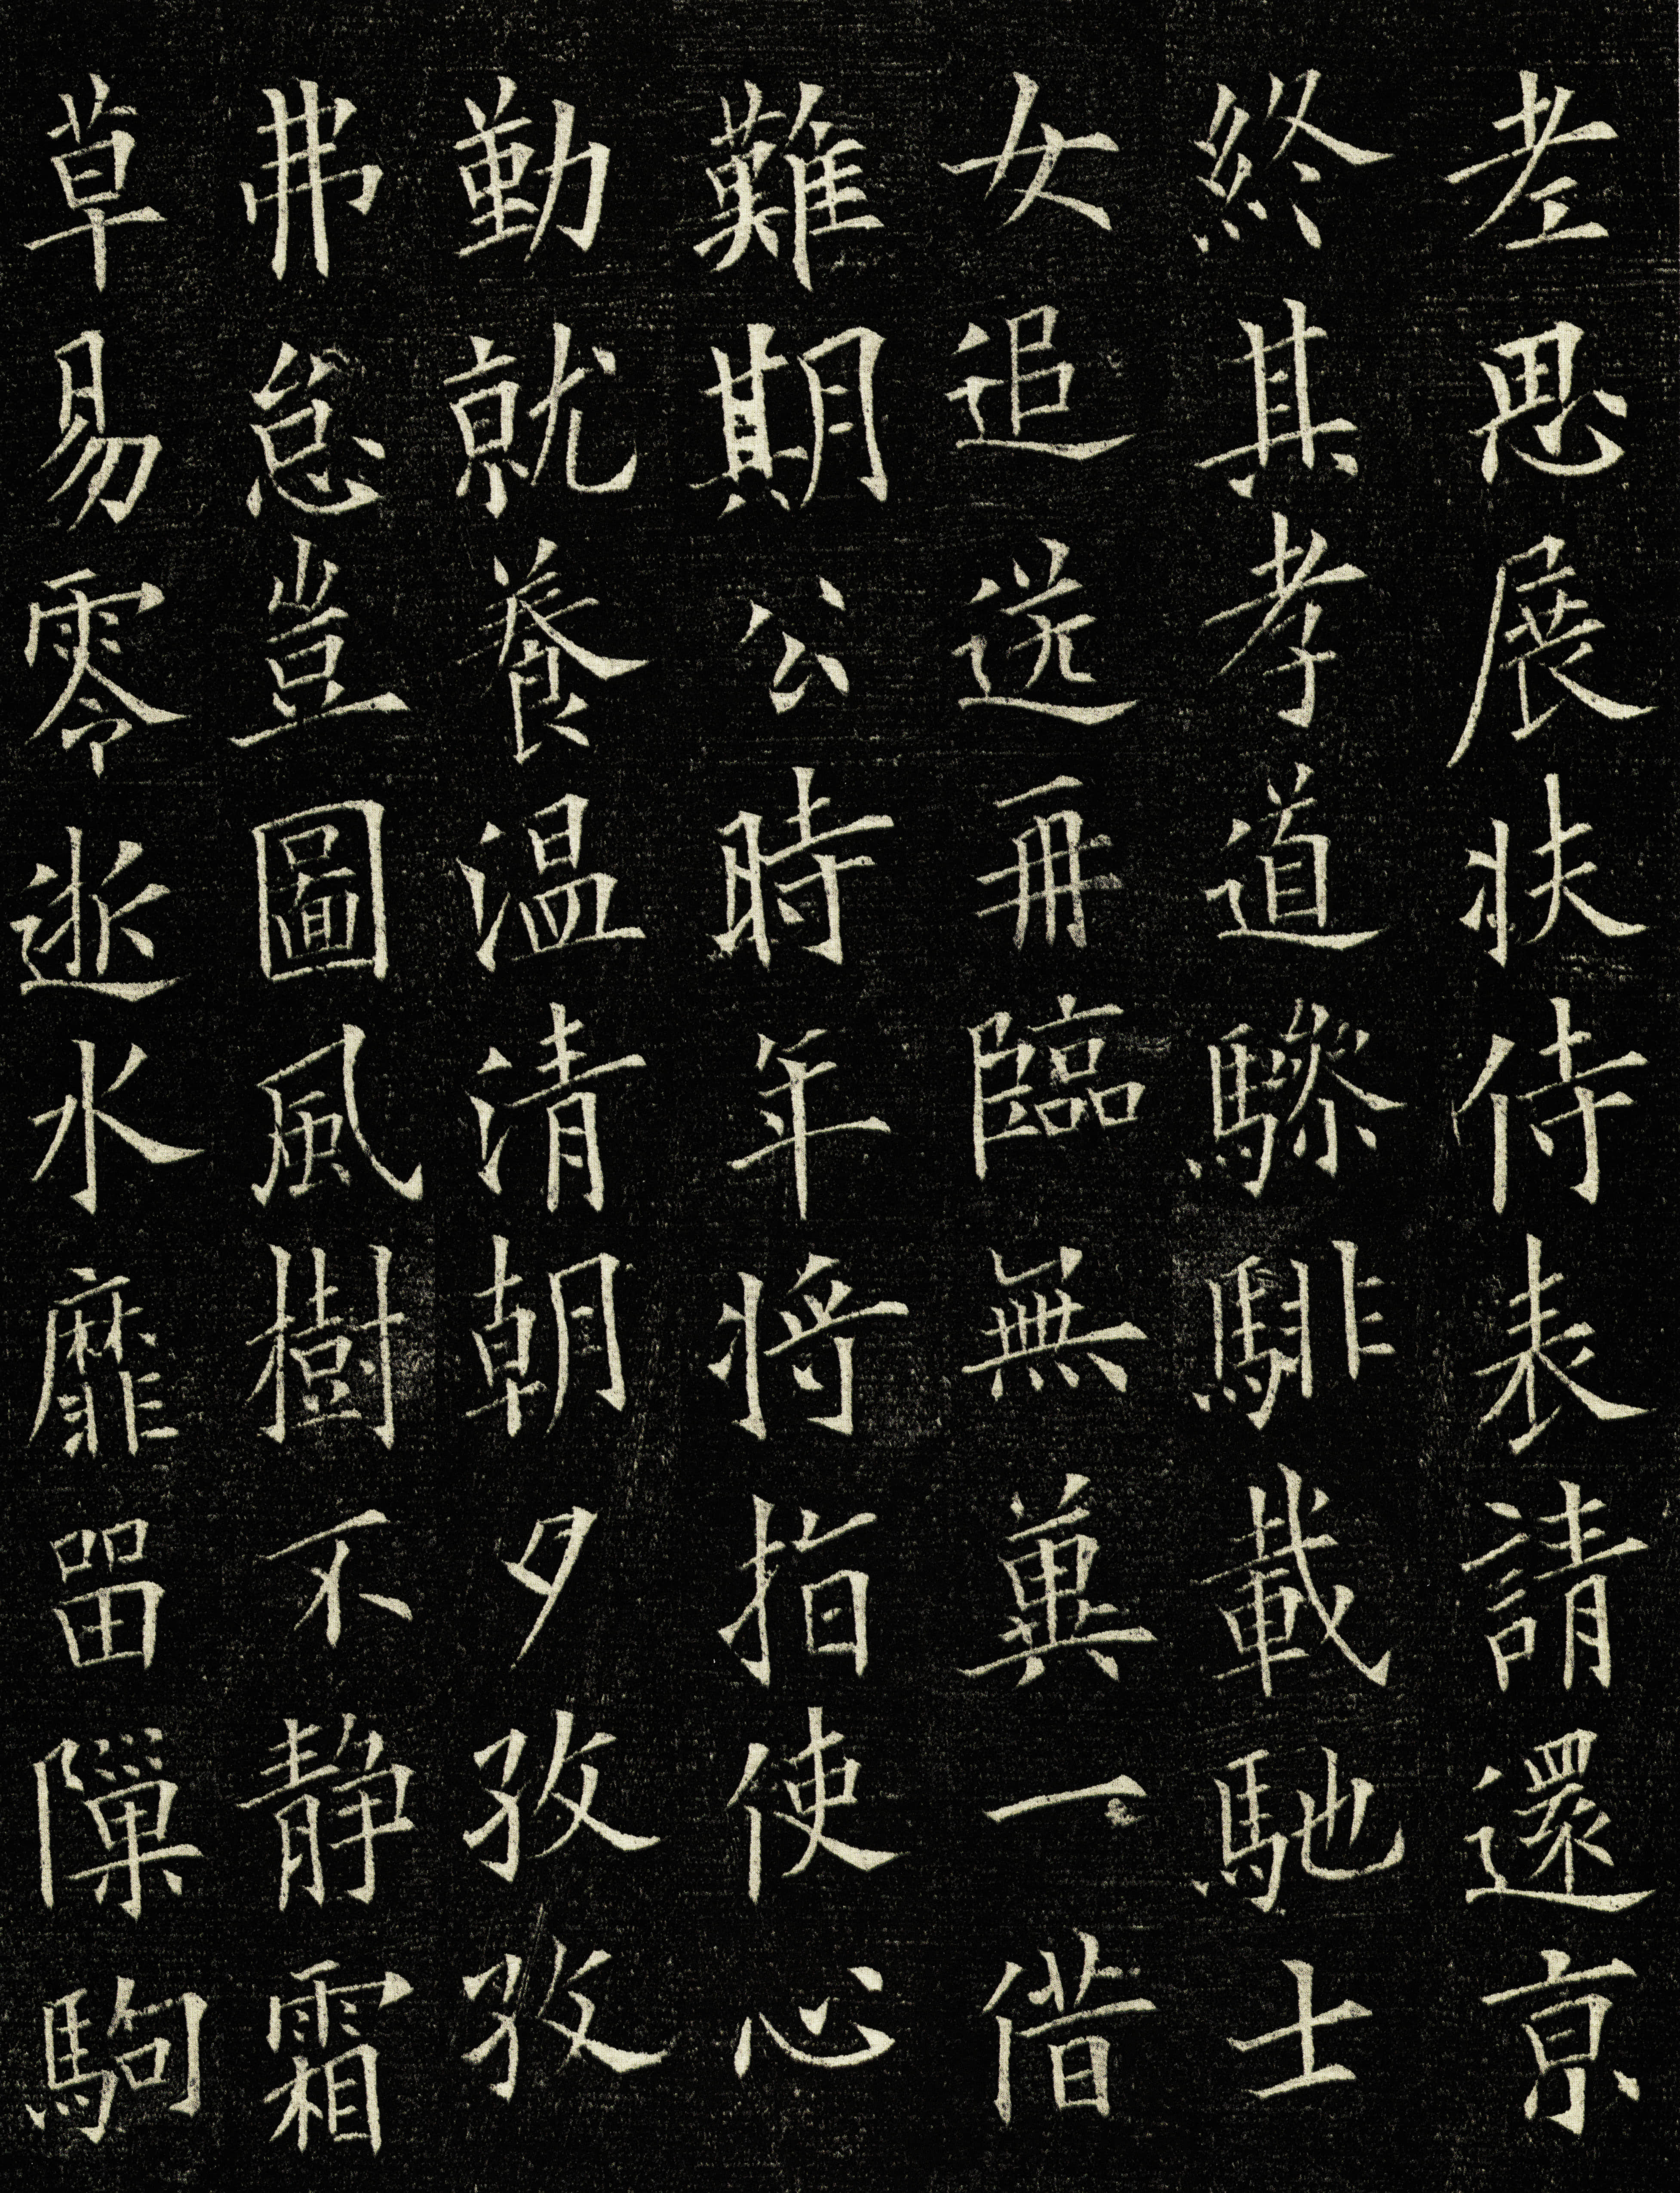 老思展扶侍表請還京
終其孝道驂騑載馳士
女追送再臨無冀一借
難期公時年将指使心
勤就養温清朝夕孜孜
弗怠豈圖風樹不静霜
草易零逝水靡留隟駒